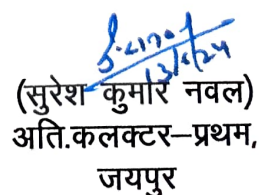 13/6/24
(सुरेश कुमार नवल)
अति.कलक्टर–प्रथम,
जयपुर